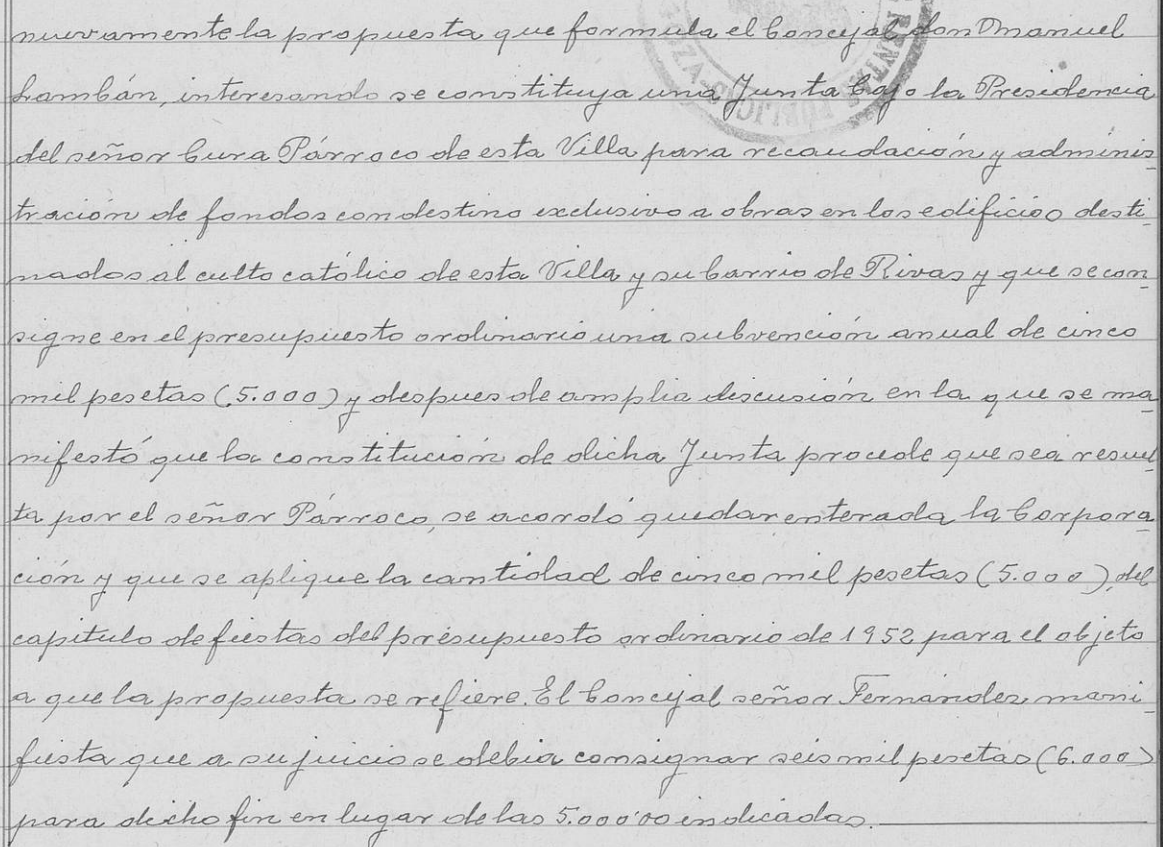 nuevamente la propuesta que formula el Concejal don Manuel
Lambán, interesando se constituya una Junta bajo la Presidencia
del señor Cura Párroco de esta Villa para recaudación y adminis-
tración de fondos con destino exclusivo a obras en los edificios desti-
nados al culto católico de esta Villa y su barrio de Rivas y que se con-
signe en el presupuesto ordinario una subvención anual de cinco
mil pesetas (5.000) y despues de amplia discusión en la que se ma-
nifestó que la constitución de dicha Junta procede que sea resuel-
ta por el señor Párroco, se acordó quedar enterada la Corpora-
ción y que se aplique la cantidad de cinco mil pesetas (5.000), del
capitulo de fiestas del presupuesto ordinario de 1952 para el objeto
a que la propuesta se refiere. El Concejal señor Fernández mani-
fiesta que a su juicio se debia consignar seis mil pesetas (6.000)
para dicho fin en lugar de las 5.000'00 indicadas.